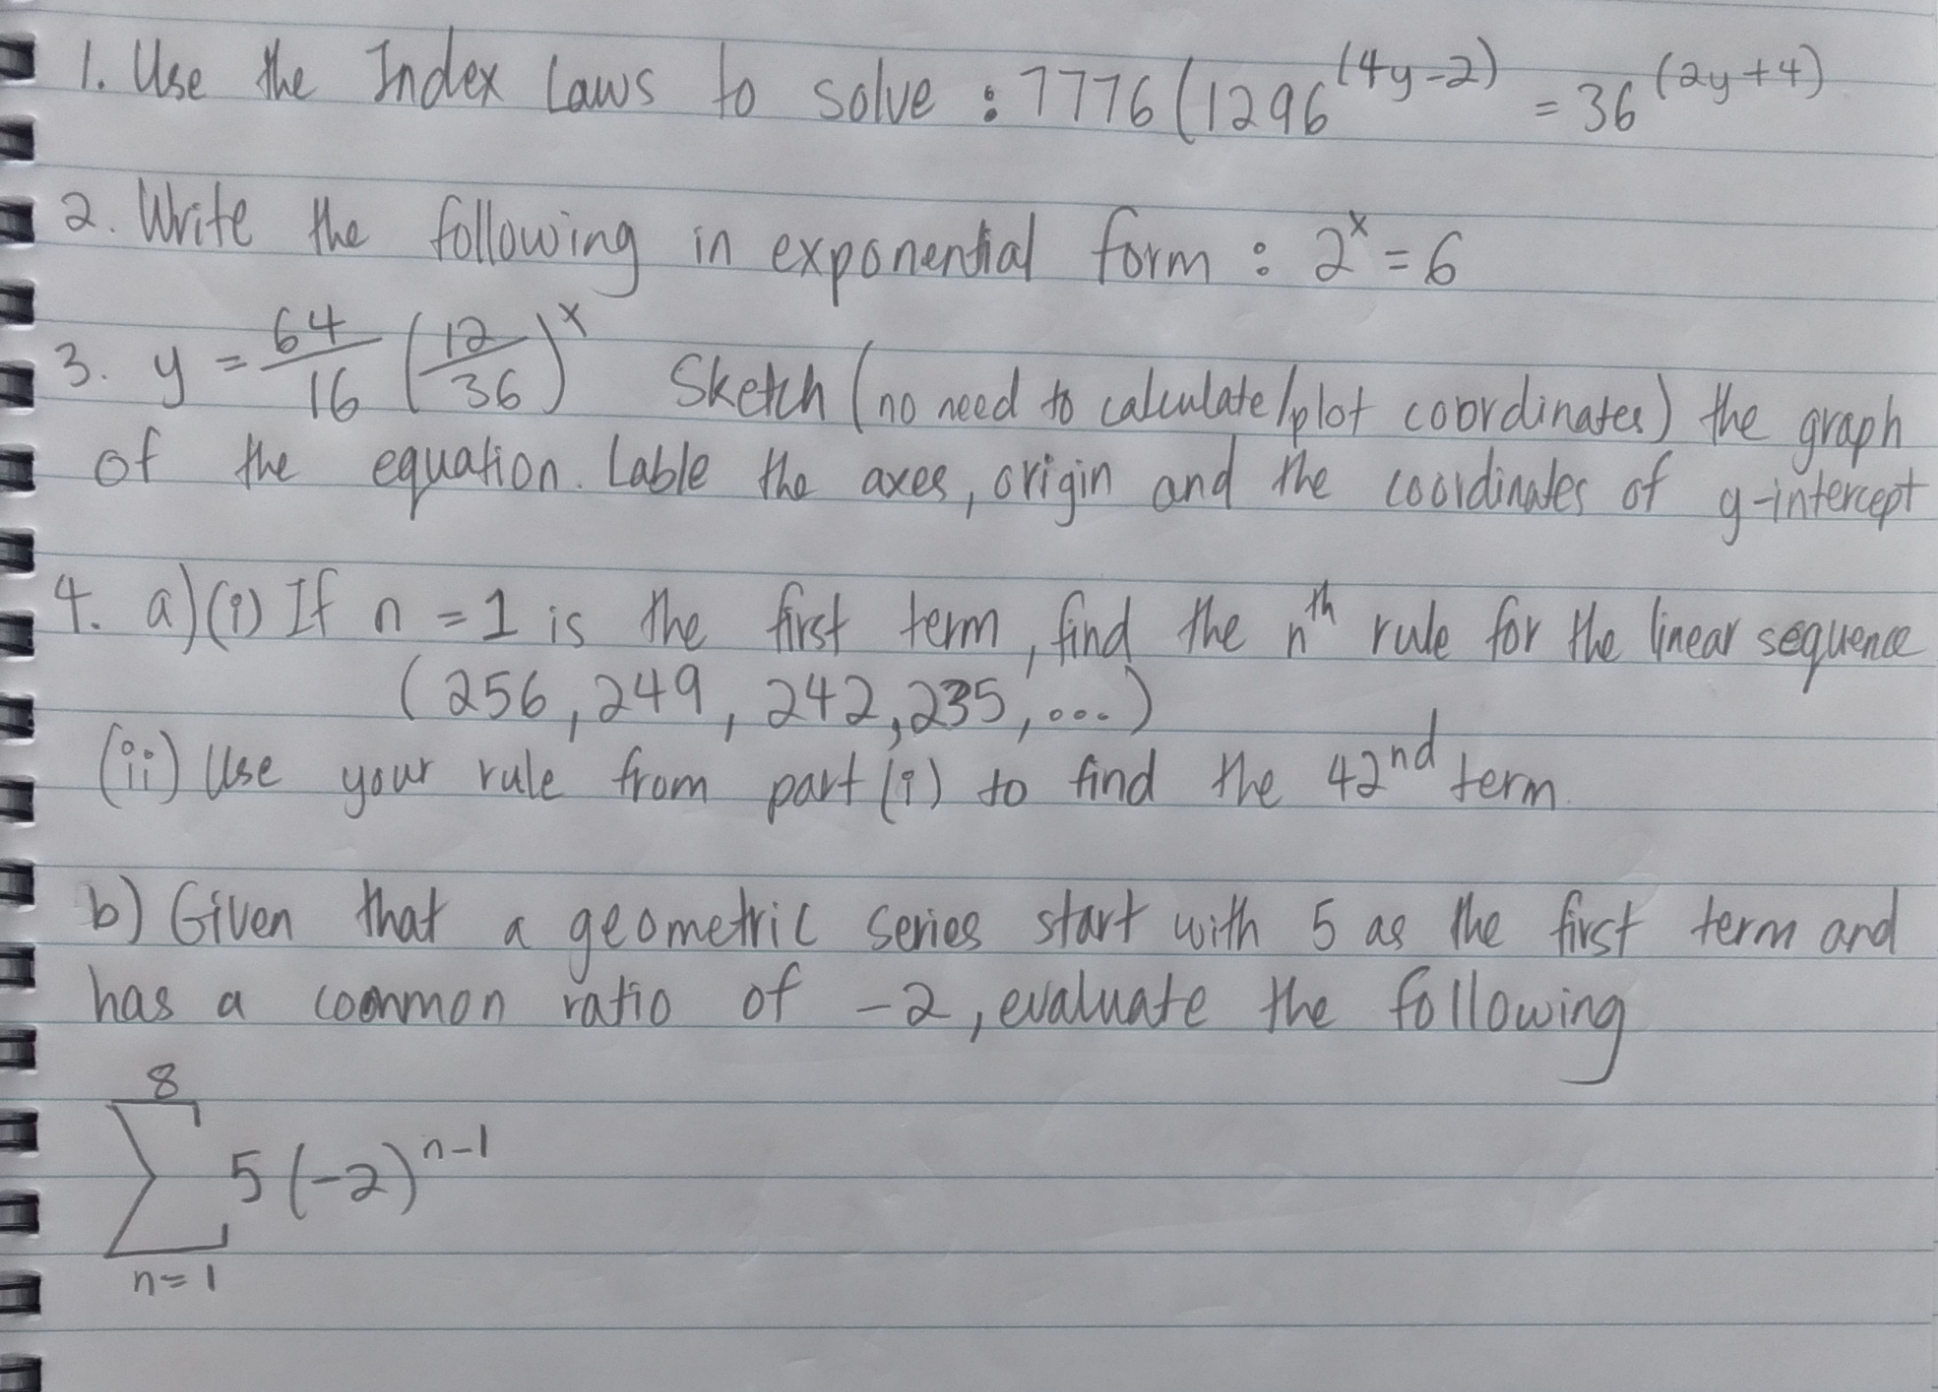 1. Use the Index Laws to solve : 7776(1296^(4y-2) = 36^(2y+4)
2. Write the following in exponential form : 2^x = 6
3. y = 64/16 (12/36)^x Sketch (no need to calculate/plot coordinates) the graph
of the equation. Lable the axes, origin and the coordinates of y-intercept
4. a)(i) If n = 1 is the first term, find the n^th rule for the linear sequence
(256, 249, 242, 235, ...)
(ii) Use your rule from part (i) to find the 42^nd term.
b) Given that a geometric series start with 5 as the first term and
has a common ratio of -2, evaluate the following
8
∑ 5(-2)^n-1
n=1